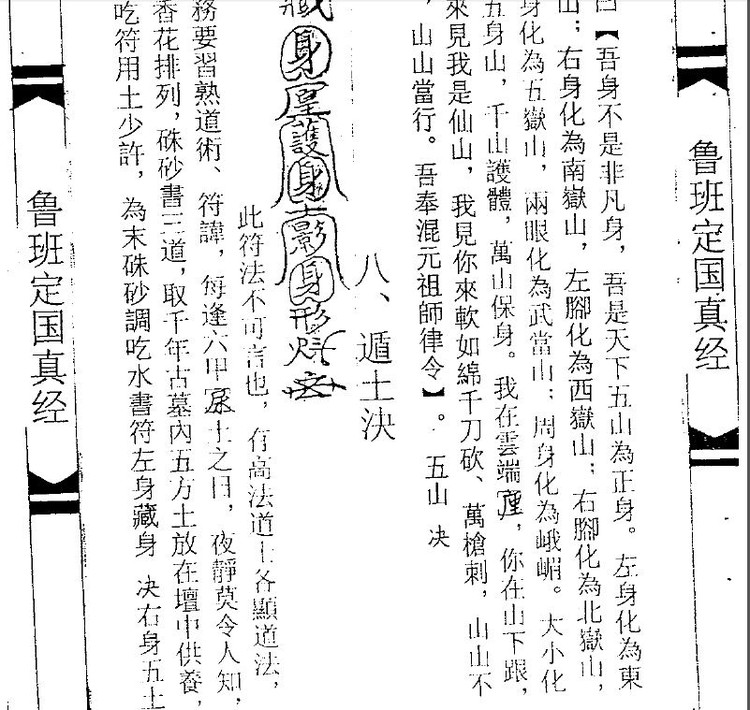 鲁班定国真经
曰【吾身不是非凡身，吾是天下五山為正身。左身化為東
山；右身化為南嶽山，左腳化為西嶽山；右腳化為北嶽山，
身化為五嶽山，兩眼化為武當山；周身化為峨嵋。大小化
五身山，千山護體，萬山保身。我在雲端裡，你在山下跟，
來見我是仙山，我見你來軟如綿千刀砍、萬槍刺，山山不
，山山當行。吾奉混元祖師律令】。五山 决
八、遁土決
藏身 護身 影身形
此符法不可言也，有高法道士各顯道法，
務要習熟道術、符諱，每逢六甲 土之日，夜靜莫令人知，
香花排列，硃砂書三道，取千年古墓內五方土放在壇中供養，
吃符用土少許，為末硃砂調吃水書符左身藏身 决右身五土
鲁班定国真经